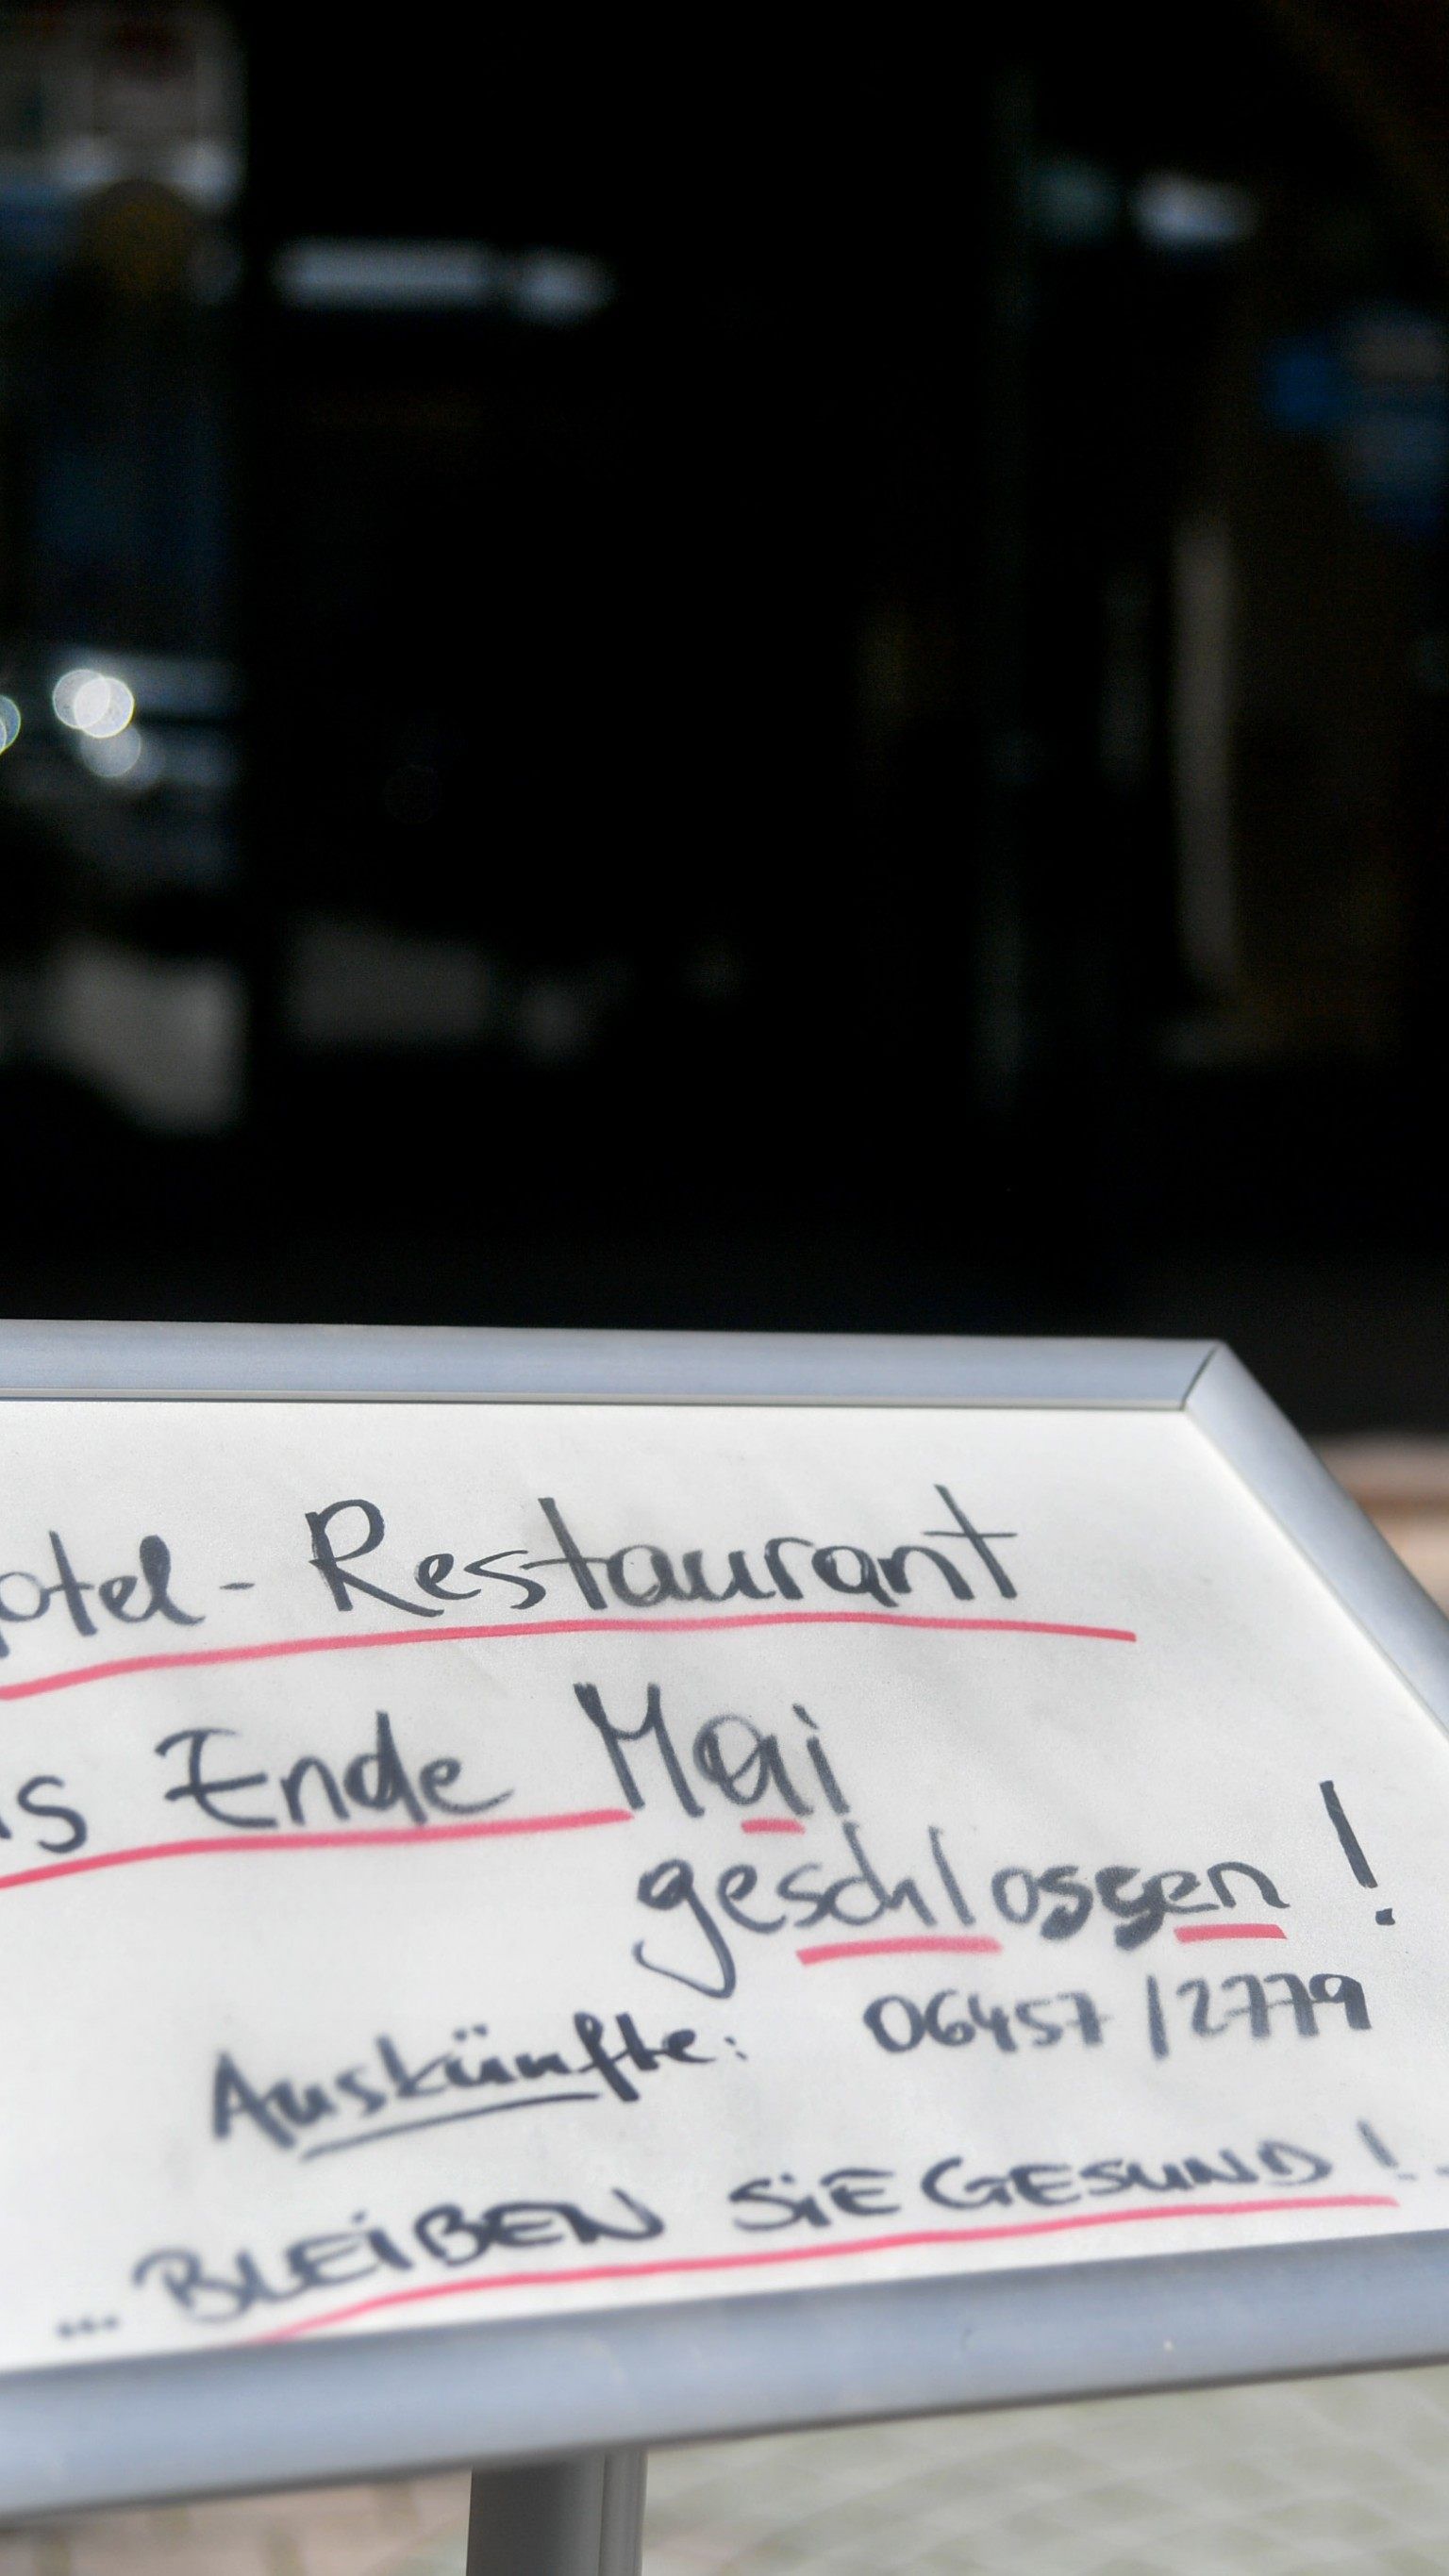 otel - Restaurant
is Ende Mai
geschlossen !
Auskünfte: 06457 / 2779
... BLEIBEN SIE GESUND ! .